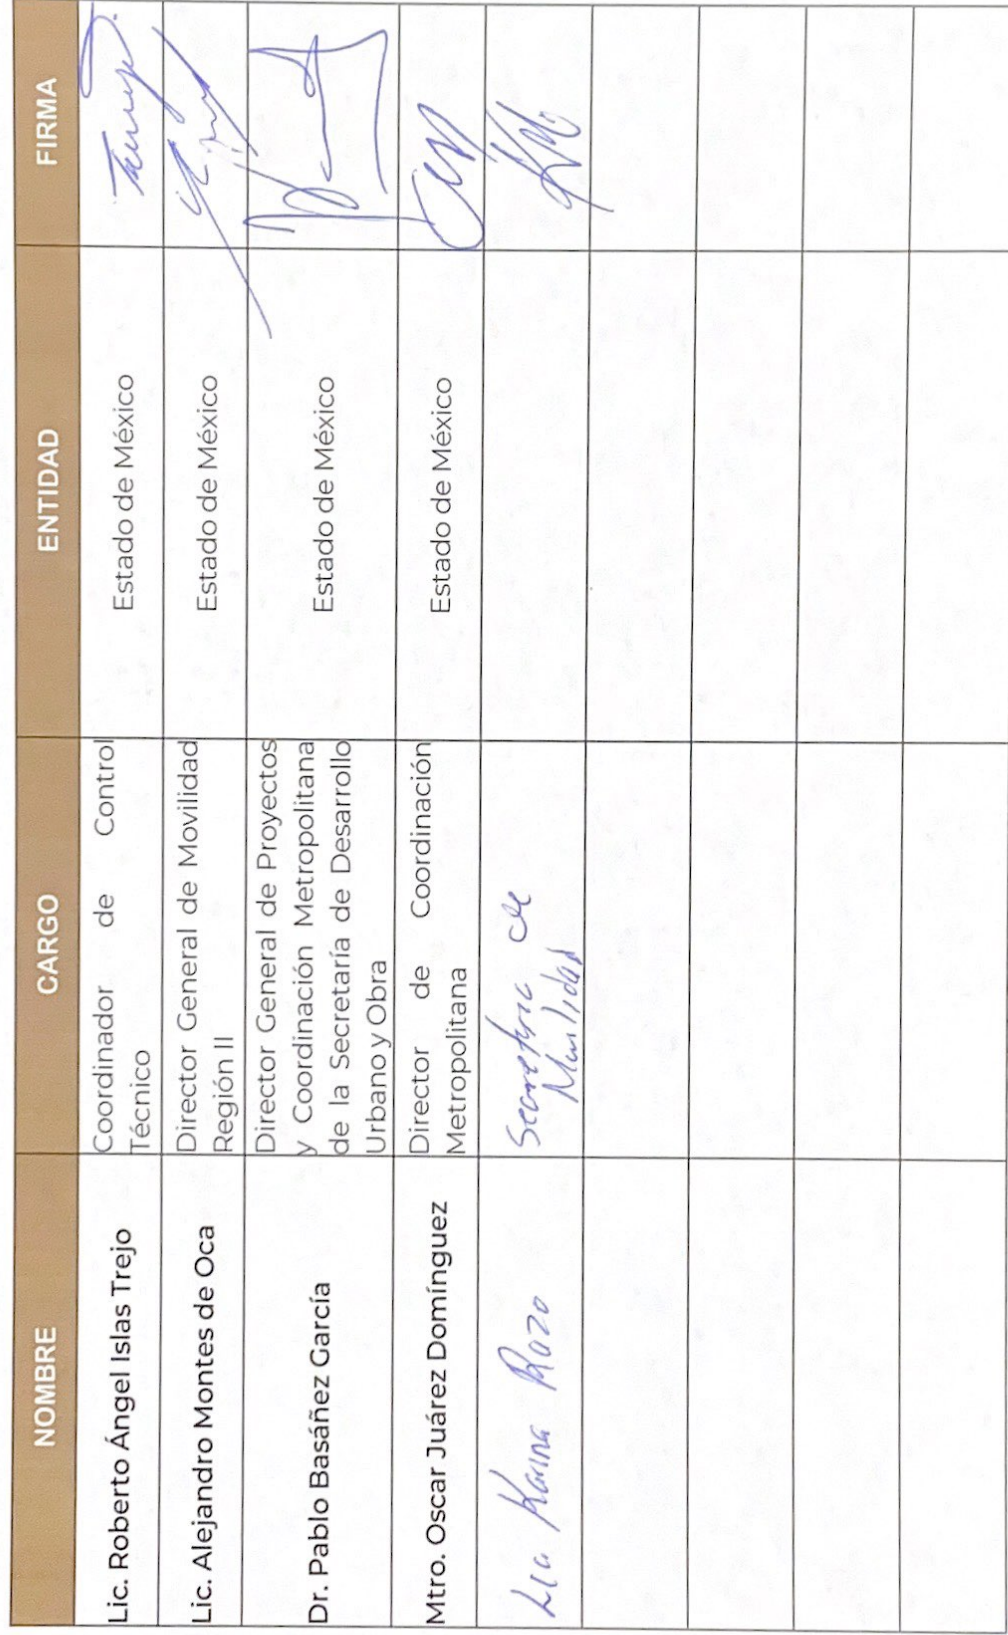 NOMBRE CARGO ENTIDAD FIRMA
Lic. Roberto Ángel Islas Trejo
Coordinador de Control
Técnico
Estado de México
Lic. Alejandro Montes de Oca
Director General de Movilidad
Región II
Estado de México
Dr. Pablo Basáñez García
Director General de Proyectos
y Coordinación Metropolitana
de la Secretaría de Desarrollo
Urbano y Obra
Estado de México
Mtro. Oscar Juárez Domínguez
Director de Coordinación
Metropolitana
Estado de México
Karina Rozo
de
Movilidad